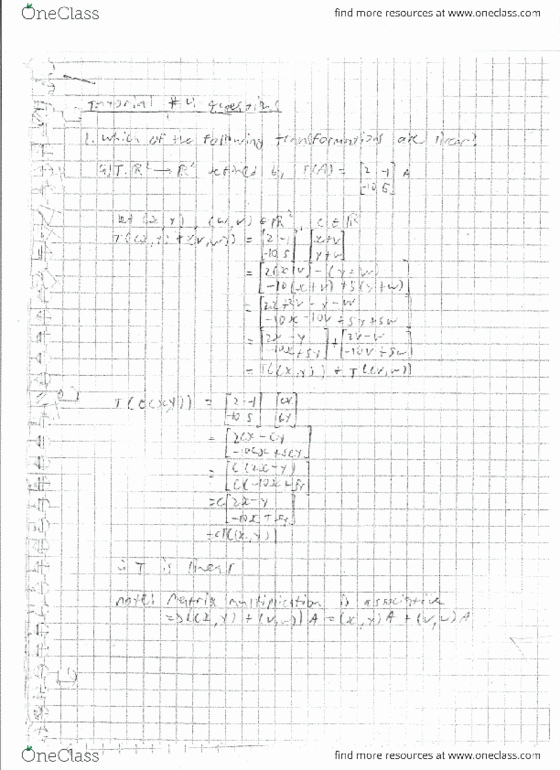 OneClass find more resources at www.oneclass.com
Tutorial #4 questions
1. Which of the following transformations are linear?
a) T: R² → R² defined by T(A) = [2 -1; -10 5] A
let (x, y), (v, w) ∈ R², c ∈ R
T((x, y) + (v, w)) = [2 -1; -10 5] [x+v; y+w]
= [2(x+v) - (y+w); -10(x+v) + 5(y+w)]
= [2x+2v-y-w; -10x-10v+5y+5w]
= [2x-y; -10x+5y] + [2v-w; -10v+5w]
= T((x,y)) + T((v,w))
T(c(x,y)) = [2 -1; -10 5] [cx; cy]
= [2cx-cy; -10cx+5cy]
= [c(2x-y); c(-10x+5y)]
= c[2x-y; -10x+5y]
= cT((x,y))
∴ T is linear
note: Matrix multiplication is associative
=> ((x,y) + (v,w)) A = (x,y)A + (v,w)A
OneClass find more resources at www.oneclass.com